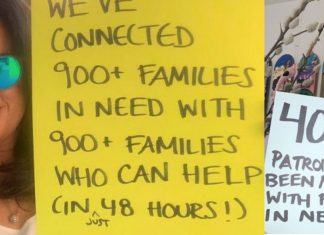 WE'VE
CONNECTED
900+ FAMILIES
IN NEED WITH
900+ FAMILIES
WHO CAN HELP
(IN JUST 48 HOURS!)
40
PATRO
BEEN
WITH F
IN NE